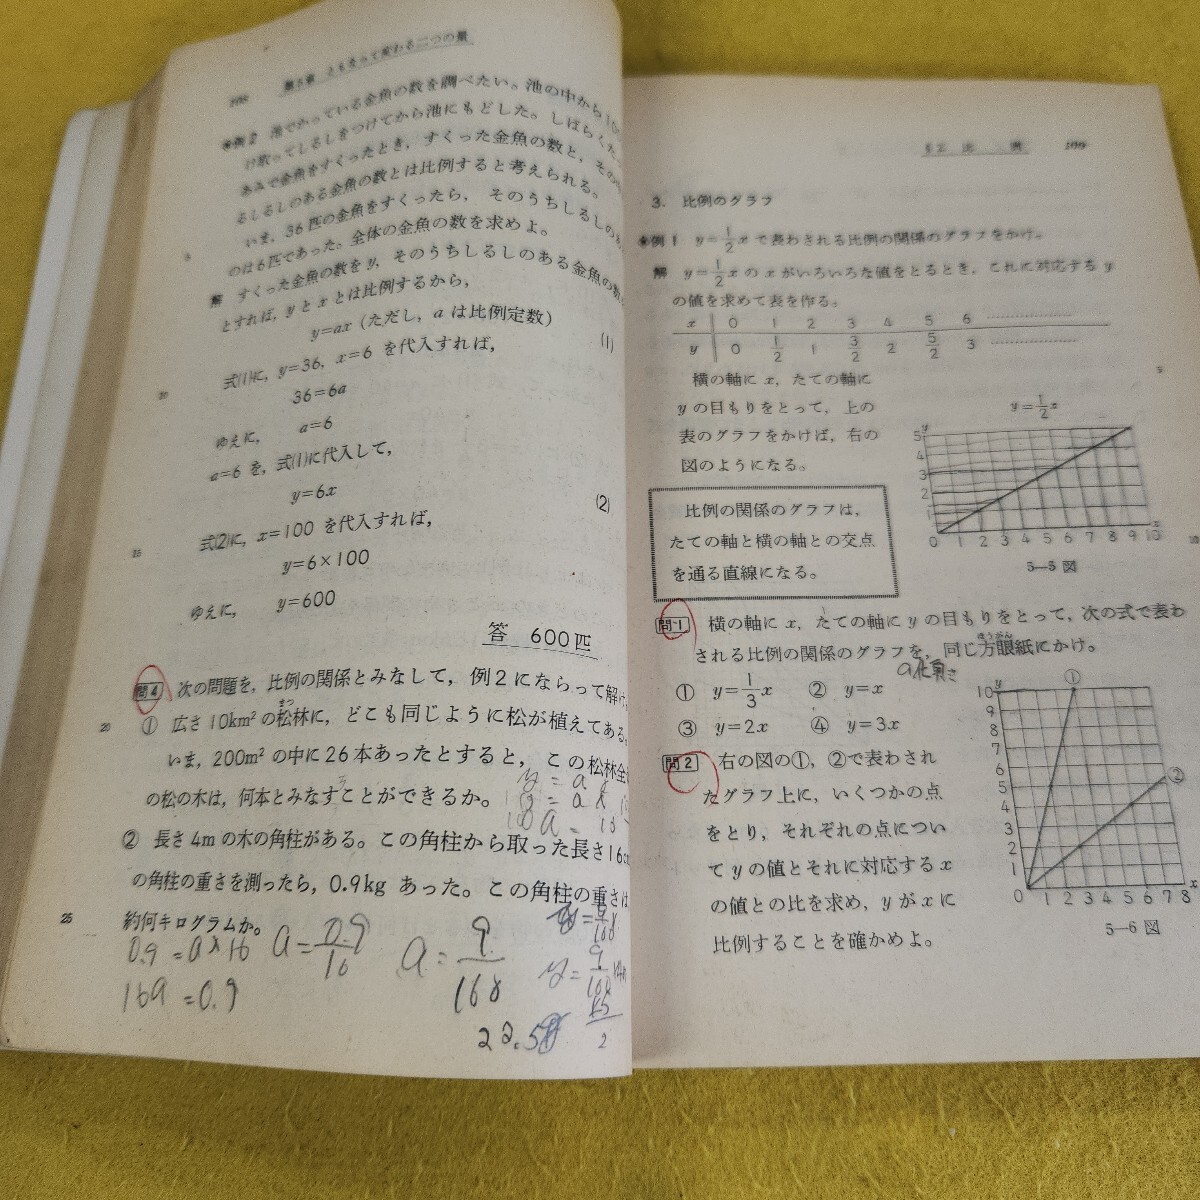 108 第5章 ともなって変わる二つの量
例2 池でかっている金魚の数を調べたい。池の中から10
け取ってしるしをつけてから池にもどした。しばらくたっ
あみで金魚をすくったとき，すくった金魚の数と，その
るしるしのある金魚の数とは比例すると考えられる。
いま，36匹の金魚をすくったら，そのうちしるしの
のは6匹であった。全体の金魚の数を求めよ。
5
解 すくった金魚の数をy，そのうちしるしのある金魚の数
とすれば，yとxとは比例するから，
y=ax（ただし，aは比例定数） (1)
式(1)に，y=36，x=6 を代入すれば，
10
36=6a
ゆえに， a=6
a=6 を，式(1)に代入して，
y=6x (2)
式(2)に，x=100 を代入すれば，
15
y=6×100
ゆえに， y=600
答 600匹
問4 次の問題を，比例の関係とみなして，例2にならって解け
20 ① 広さ10km²の松林に，どこも同じように松が植えてある。
まつ
いま，200m²の中に26本あったとすると，この松林全
の松の木は，何本とみなすことができるか。
② 長さ4mの木の角柱がある。この角柱から取った長さ16c
の角柱の重さを測ったら，0.9kg あった。この角柱の重さは
25 約何キログラムか。
0.9=a×16 a=0.9/16 a=9/160
16a=0.9
22.5
109
3. 比例のグラフ
例1 y=1/2x で表わされる比例の関係のグラフをかけ。
解 y=1/2xのxがいろいろな値をとるとき，これに対応するy
の値を求めて表を作る。
x 0 1 2 3 4 5 6 ……
y 0 1/2 1 3/2 2 5/2 3 ……
5
横の軸にx，たての軸に
yの目もりをとって，上の
表のグラフをかけば，右の
図のようになる。
y=1/2x
y
5
4
3
2
1
0 1 2 3 4 5 6 7 8 9 10 x
5—5 図
10
比例の関係のグラフは，
たての軸と横の軸との交点
を通る直線になる。
問1 横の軸にx，たての軸にyの目もりをとって，次の式で表わ
される比例の関係のグラフを，同じ方眼紙にかけ。
ほうがん
① y=1/3x ② y=x
③ y=2x ④ y=3x
問2 右の図の①，②で表わされ
たグラフ上に，いくつかの点
をとり，それぞれの点につい
てyの値とそれに対応するx
の値との比を求め，yがxに
比例することを確かめよ。
y ①
10
9
8
7
6 ②
5
4
3
2
1
0 1 2 3 4 5 6 7 8 x
5—6 図